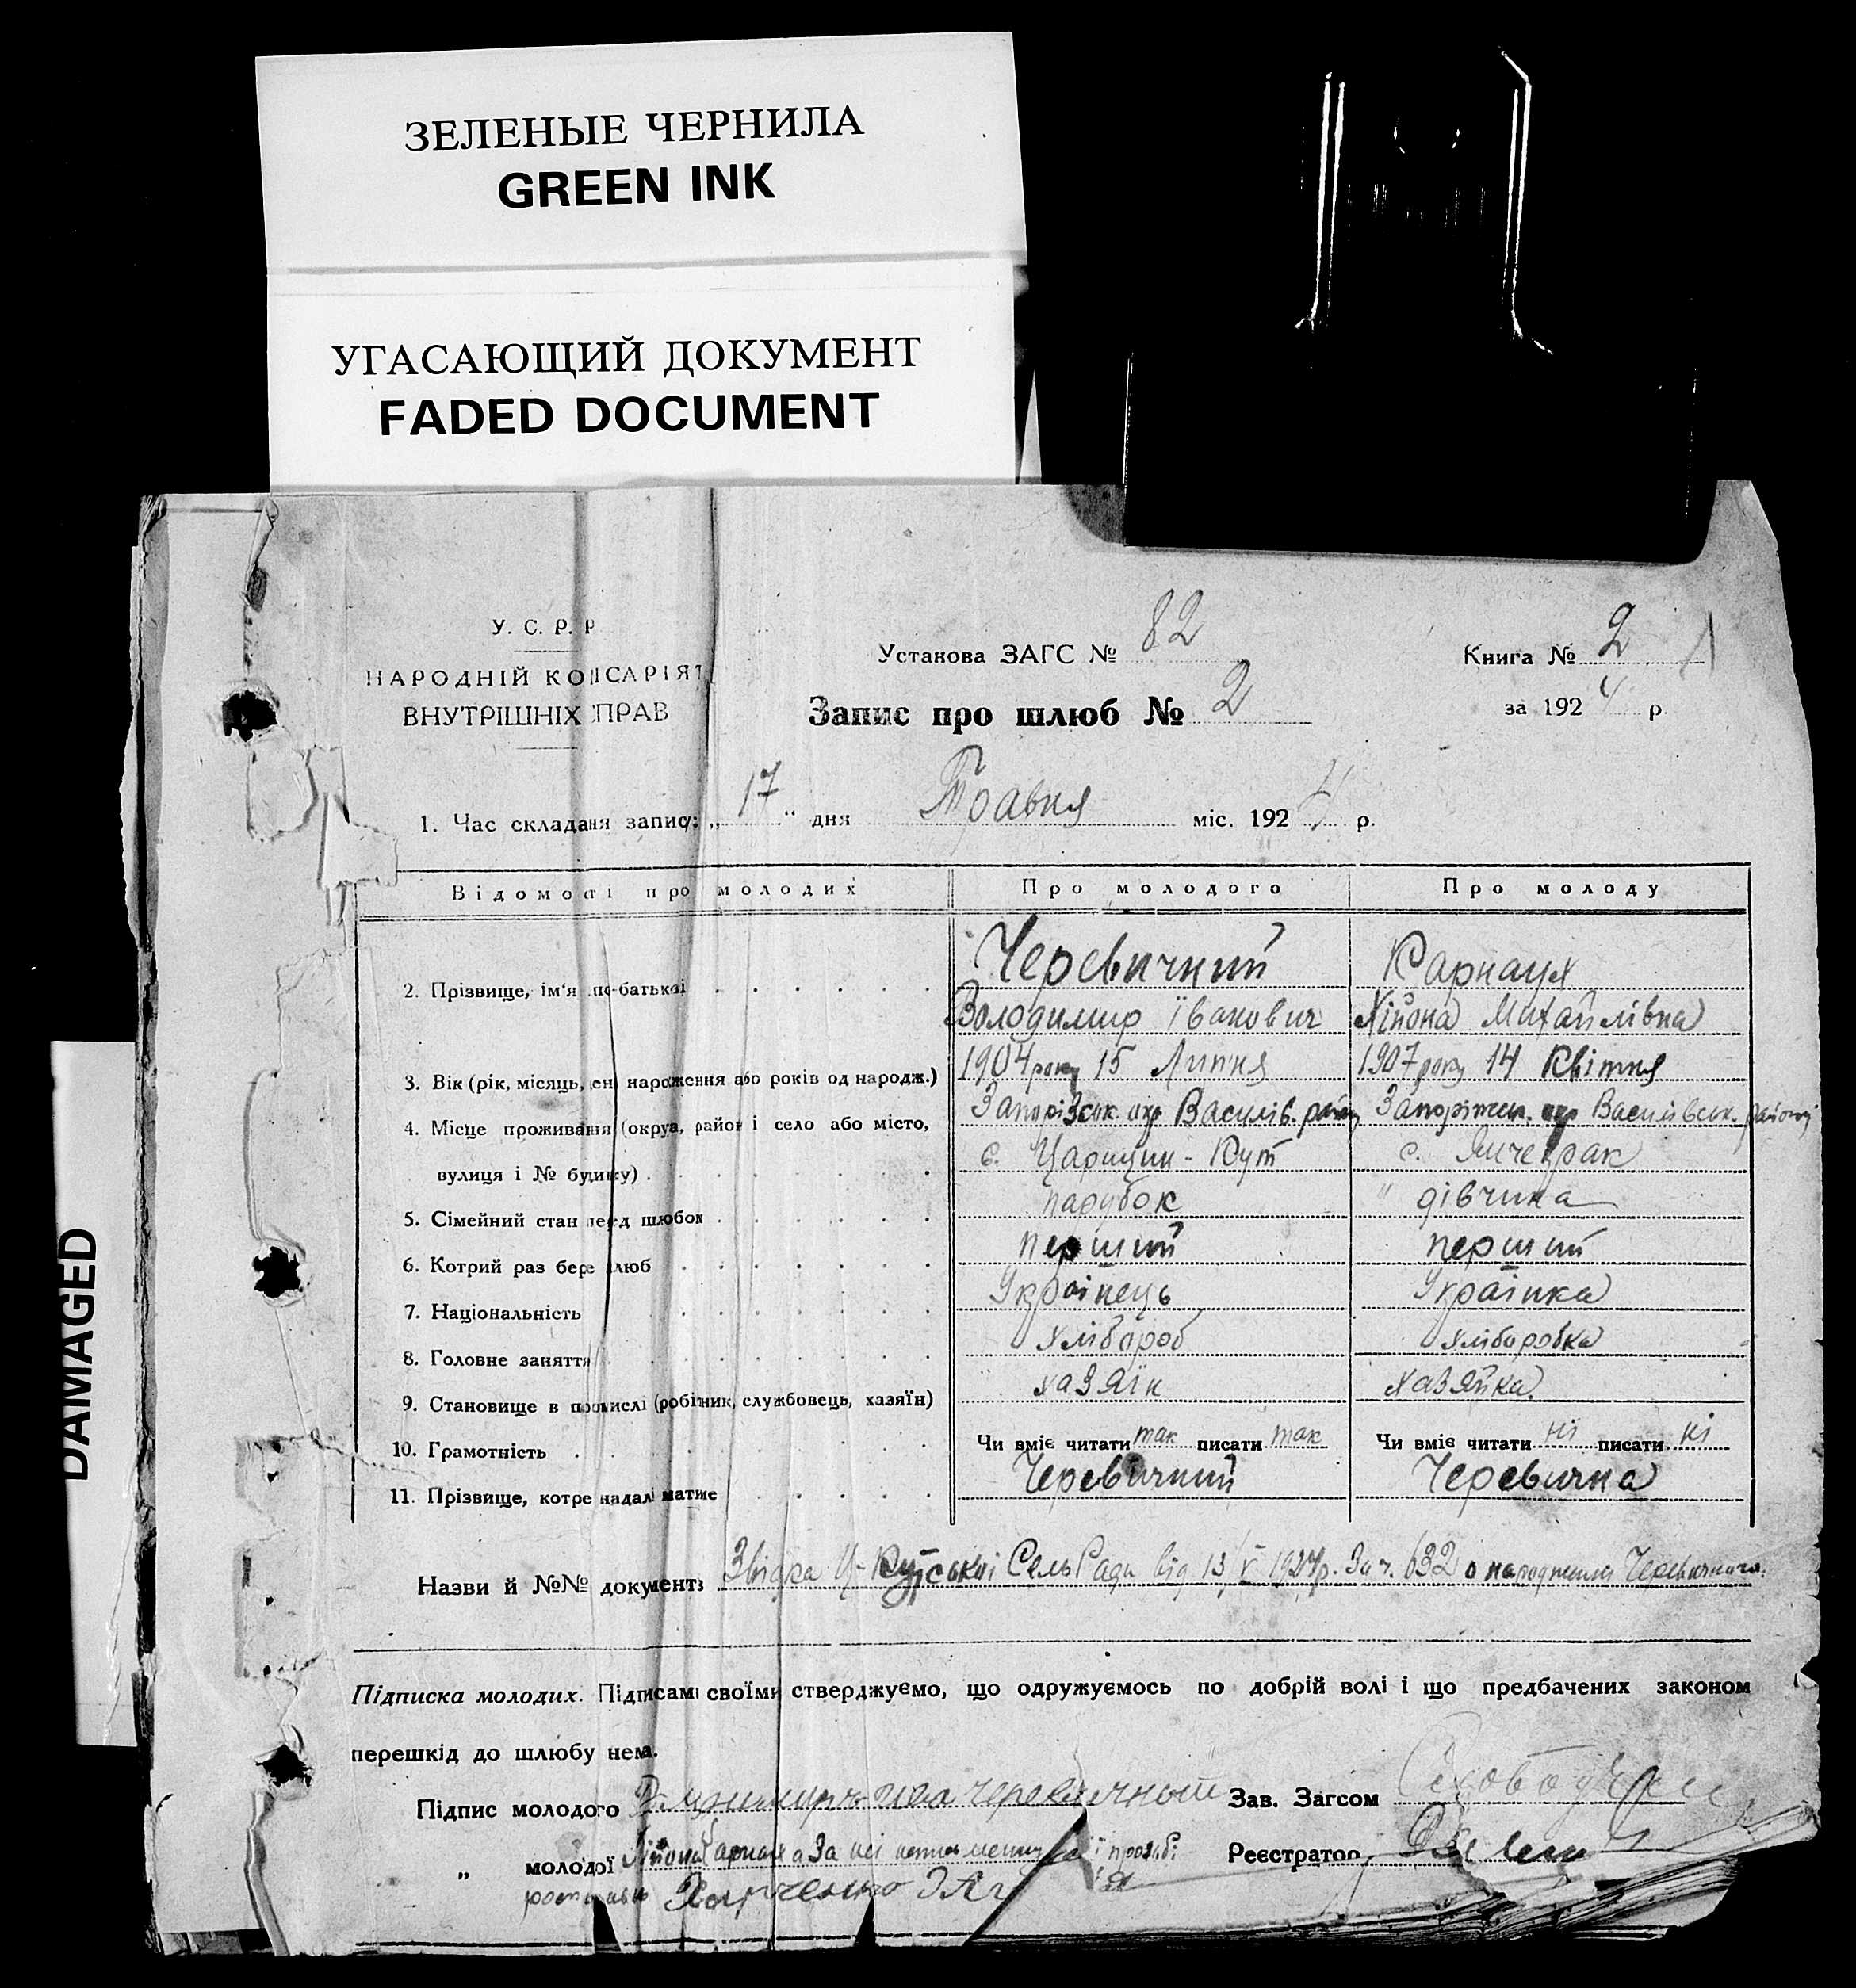 ЗЕЛЕНЫЕ ЧЕРНИЛА
GREEN INK
УГАСАЮЩИЙ ДОКУМЕНТ
FADED DOCUMENT
DAMAGED
У. С. Р. Р
НАРОДНІЙ КОМІСАРІЯТ
ВНУТРІШНІХ СПРАВ
Установа ЗАГС № 82
Книга № 2
Запис про шлюб № 2
за 1924 р
1. Час складання запису: „ 17 " дня Травня міс. 1924 р.
Відомості про молодих Про молодого Про молоду
2. Прізвище, ім'я по-батькові Черевичний Карнаух
Володимир Іванович Хівона Михайлівна
3. Вік (рік, місяць, день народження або років од народж.) 1904 року 15 Липня 1907 року 14 Квітня
4. Місце проживання (округа, район і село або місто, Запорізськ. окр Василів. район Запоріжськ. окр Василівськ. району
вулиця і № будинку) с. Царицин - Кут с. Янчекрак
5. Сімейний стан перед шлюбом парубок " дівчина
6. Котрий раз бере шлюб перший перший
7. Національність Українець Українка
8. Головне заняття хлібороб хліборобка
9. Становище в промислі (робітник, службовець, хазяїн) хазяїн хазяйка
10. Грамотність Чи вміє читати так писати так Чи вміє читати ні писати ні
11. Прізвище, котре надалі матиме Черевичний Черевична
Назви й №№ документів Звідка Ц-Кутської СельРади від 13/V 1924р. За ч. 632 о народженні Черевичного.
Підписка молодих. Підписами своїми стверджуємо, що одружуємось по добрій волі і що предбачених законом
перешкід до шлюбу нема.
Підпис молодого Черевичный Зав. Загсом
„ молодої Карнаух а За неі її прозьбі Реєстратор
Харченко